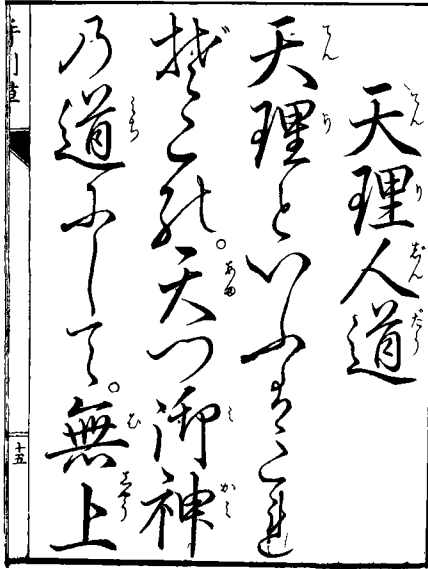 天理人道
天理といふはこれ
。天つ御神
乃道にして。無上
十五